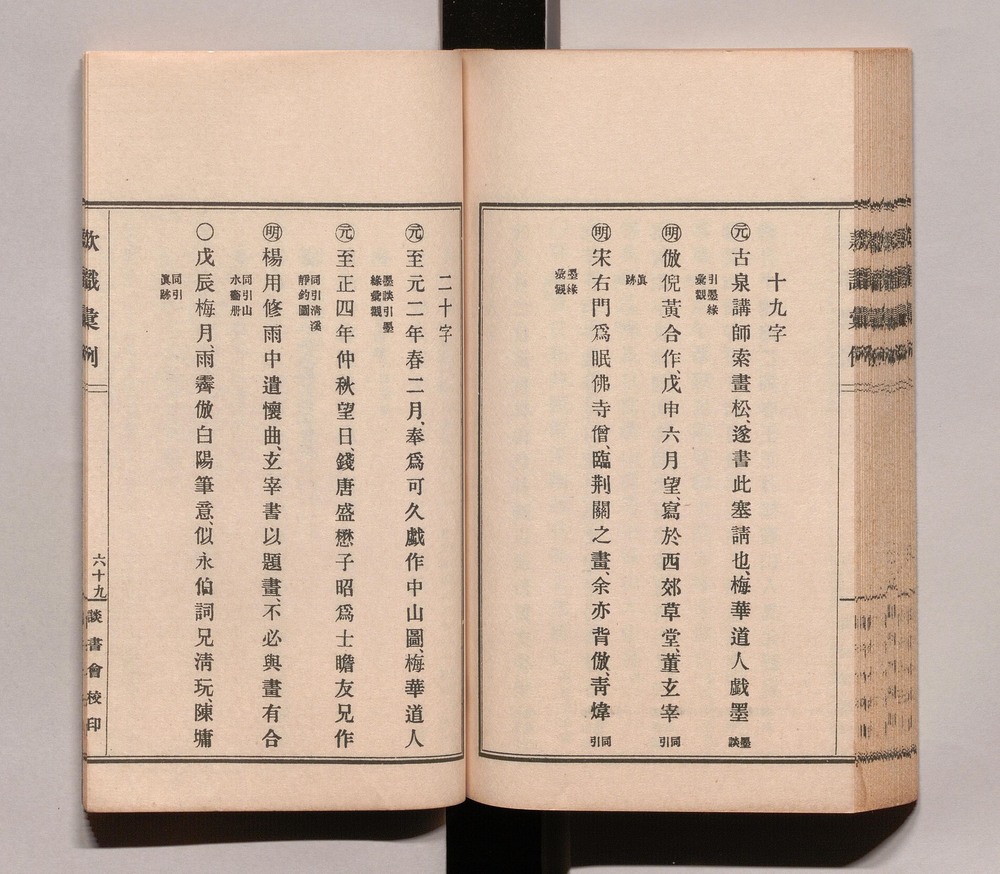 十九字
㊀元 古泉講師索畫松、遂書此塞請也、梅華道人戲墨 墨談
引墨緣
彙觀
明 倣倪黃合作、戊申六月望、寫於西郊草堂、董玄宰 同引
眞
跡
明 宋右門爲眠佛寺僧、臨荆關之畫、余亦背倣、靑煒 同引
墨緣
彙觀
二十字
元 至元二年春二月、奉爲可久戲作中山圖、梅華道人
墨談引墨
緣彙觀
元 至正四年仲秋望日、錢唐盛懋子昭爲士瞻友兄作
同引淸溪
靜釣圖
明 楊用修雨中遣懷曲、玄宰書以題畫、不必與畫有合
同引山
水畫册
〇戊辰梅月、雨霽倣白陽筆意、似永伯詞兄淸玩、陳墉
同引
眞跡
款識彙例
六十九
談書會校印